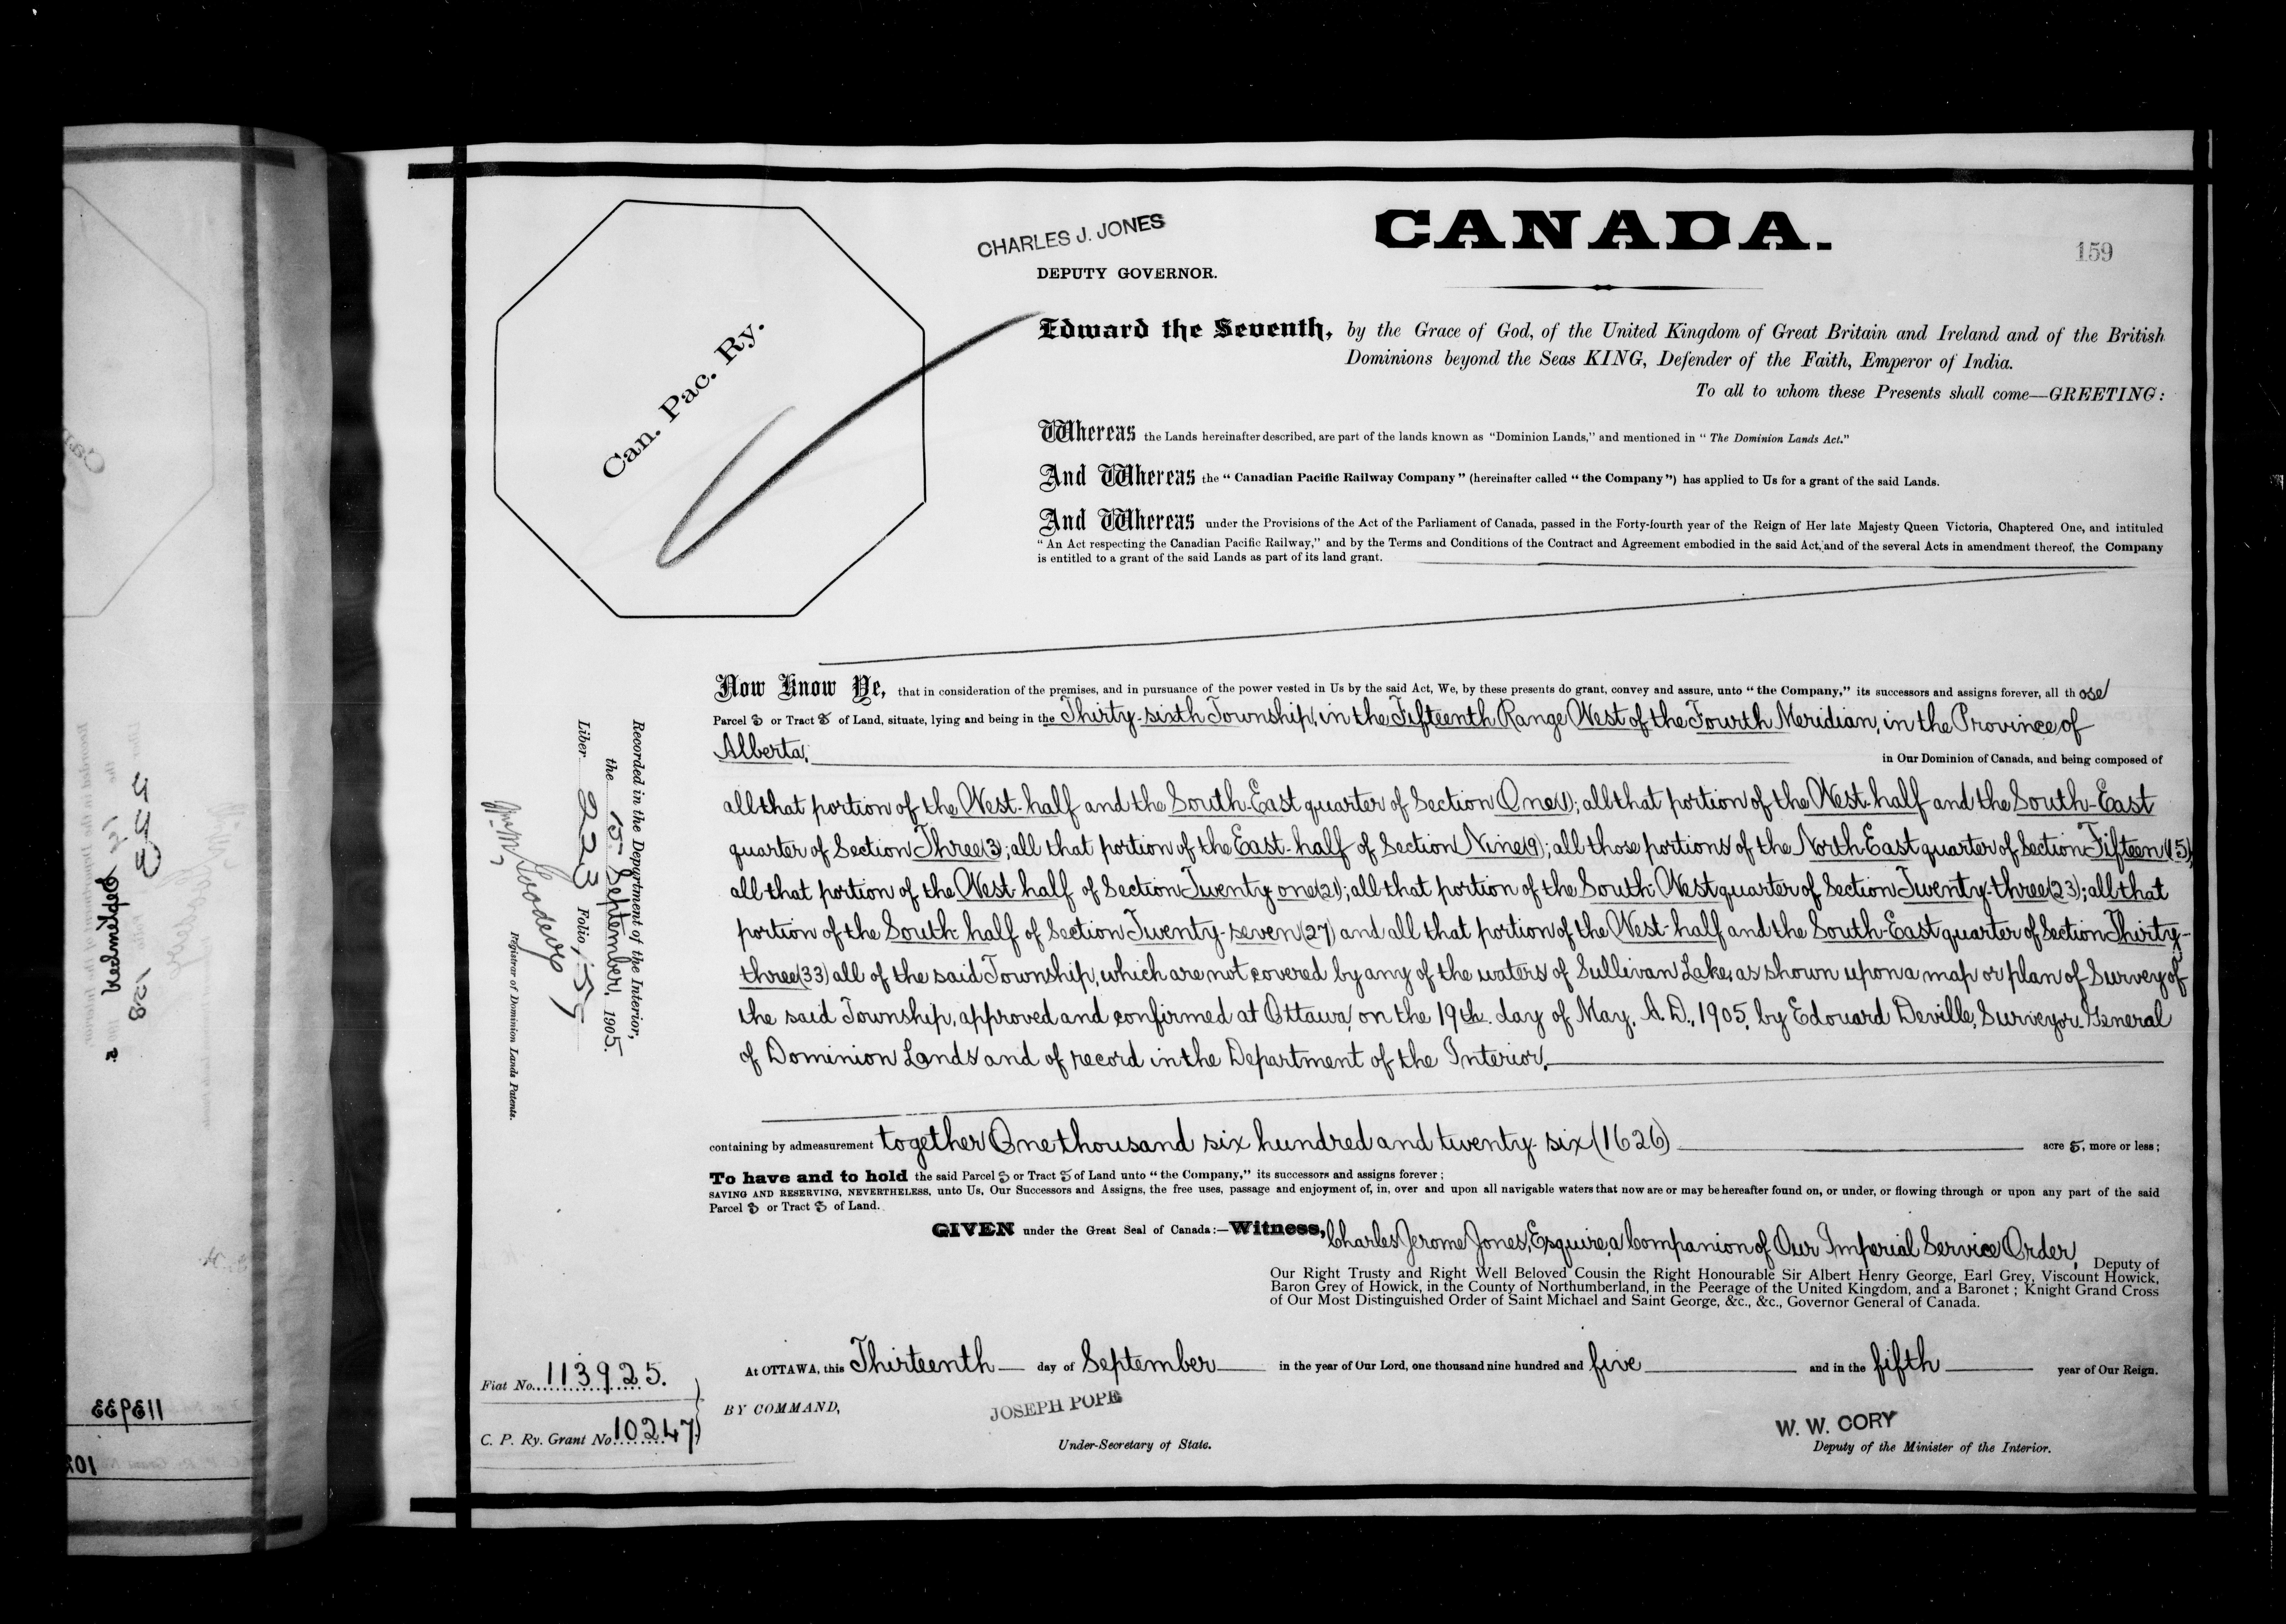 CANADA.
159
CHARLES J. JONES
DEPUTY GOVERNOR.
Can. Pac. Ry.
Edward the Seventh, by the Grace of God, of the United Kingdom of Great Britain and Ireland and of the British
Dominions beyond the Seas KING, Defender of the Faith, Emperor of India.
To all to whom these Presents shall come—GREETING:
Whereas the Lands hereinafter described, are part of the lands known as "Dominion Lands," and mentioned in "The Dominion Lands Act."
And Whereas the "Canadian Pacific Railway Company" (hereinafter called "the Company") has applied to Us for a grant of the said Lands.
And Whereas under the Provisions of the Act of the Parliament of Canada, passed in the Forty-fourth year of the Reign of Her late Majesty Queen Victoria, Chaptered One, and intituled
"An Act respecting the Canadian Pacific Railway," and by the Terms and Conditions of the Contract and Agreement embodied in the said Act, and of the several Acts in amendment thereof, the Company
is entitled to a grant of the said Lands as part of its land grant.
Now Know Ye, that in consideration of the premises, and in pursuance of the power vested in Us by the said Act, We, by these presents do grant, convey and assure, unto "the Company," its successors and assigns forever, all those
Parcel s or Tract s of Land, situate, lying and being in the Thirty-sixth Township, in the Fifteenth Range West of the Fourth Meridian, in the Province of
Alberta,
in Our Dominion of Canada, and being composed of
all that portion of the West-half and the South-East quarter of Section One(1); all that portion of the West-half and the South-East
quarter of Section Three(3); all that portion of the East-half of Section Nine(9); all those portions of the North East quarter of Section Fifteen(15);
all that portion of the West-half of Section Twenty one(21); all that portion of the South West quarter of Section Twenty-three(23); all that
portion of the South half of Section Twenty-seven(27) and all that portion of the West-half and the South-East quarter of Section Thirty-
three(33) all of the said Township, which are not covered by any of the waters of Sullivan Lake, as shown upon a map or plan of Survey of
the said Township, approved and confirmed at Ottawa, on the 19th day of May, A.D., 1905, by Edouard Deville, Surveyor General
of Dominion Lands and of record in the Department of the Interior.
containing by admeasurement together One thousand six hundred and twenty-six (1626) acre s, more or less;
To have and to hold the said Parcel s or Tract s of Land unto "the Company," its successors and assigns forever;
SAVING AND RESERVING, NEVERTHELESS, unto Us, Our Successors and Assigns, the free uses, passage and enjoyment of, in, over and upon all navigable waters that now are or may be hereafter found on, or under, or flowing through or upon any part of the said
Parcel s or Tract s of Land.
GIVEN under the Great Seal of Canada:—Witness, Charles Jerome Jones, Esquire, a Companion of Our Imperial Service Order, Deputy of
Our Right Trusty and Right Well Beloved Cousin the Right Honourable Sir Albert Henry George, Earl Grey, Viscount Howick,
Baron Grey of Howick, in the County of Northumberland, in the Peerage of the United Kingdom, and a Baronet; Knight Grand Cross
of Our Most Distinguished Order of Saint Michael and Saint George, &c., &c., Governor General of Canada.
At OTTAWA, this Thirteenth day of September in the year of Our Lord, one thousand nine hundred and five and in the fifth year of Our Reign.
BY COMMAND,
JOSEPH POPE
Under-Secretary of State.
W. W. CORY
Deputy of the Minister of the Interior.
Recorded in the Department of the Interior,
the 15 September, 1905.
Liber 223 Folio 159
Registrar of Dominion Lands Patents.
Fiat No. 113925.
C. P. Ry. Grant No. 10247